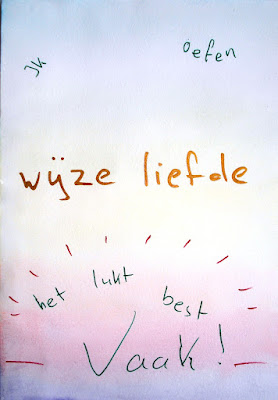 Ik oefen
wijze liefde
het lukt best
Vaak!